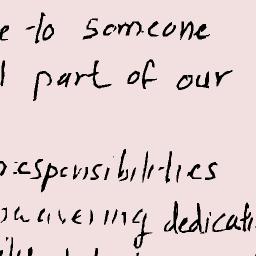 e to someone
part of our
responsibilities
unwavering dedicati